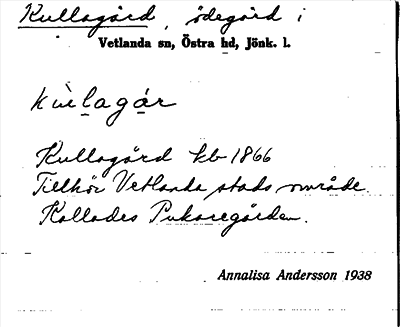 Kullagård, ödegård i
Vetlanda sn, Östra hd, Jönk. l.
kùlagár
Kullagård kb 1866
Tillhör Vetlanda stads område.
Kallades Pukaregården.
Annalisa Andersson 1938